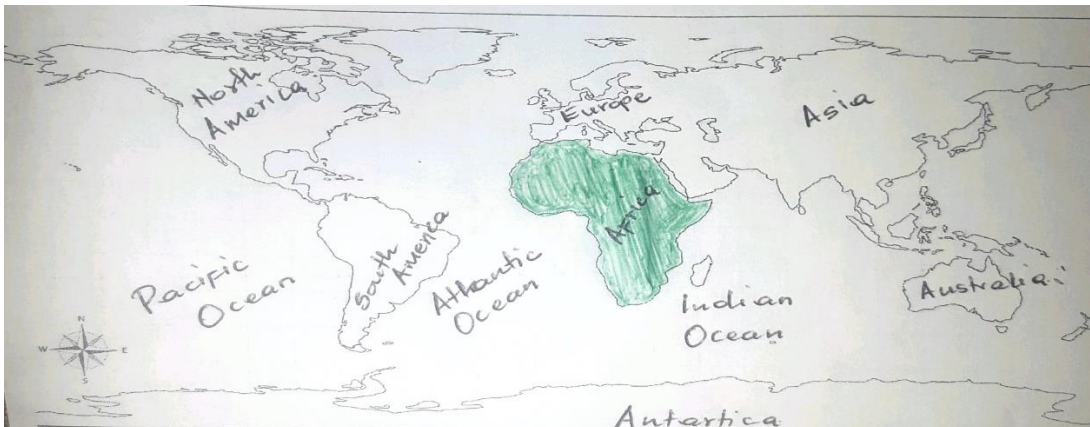 North
America
Europe
Asia
Africa
South
America
Pacific
Ocean
Athantic
Ocean
Indian
Ocean
Australia
N
W
E
S
Antartica